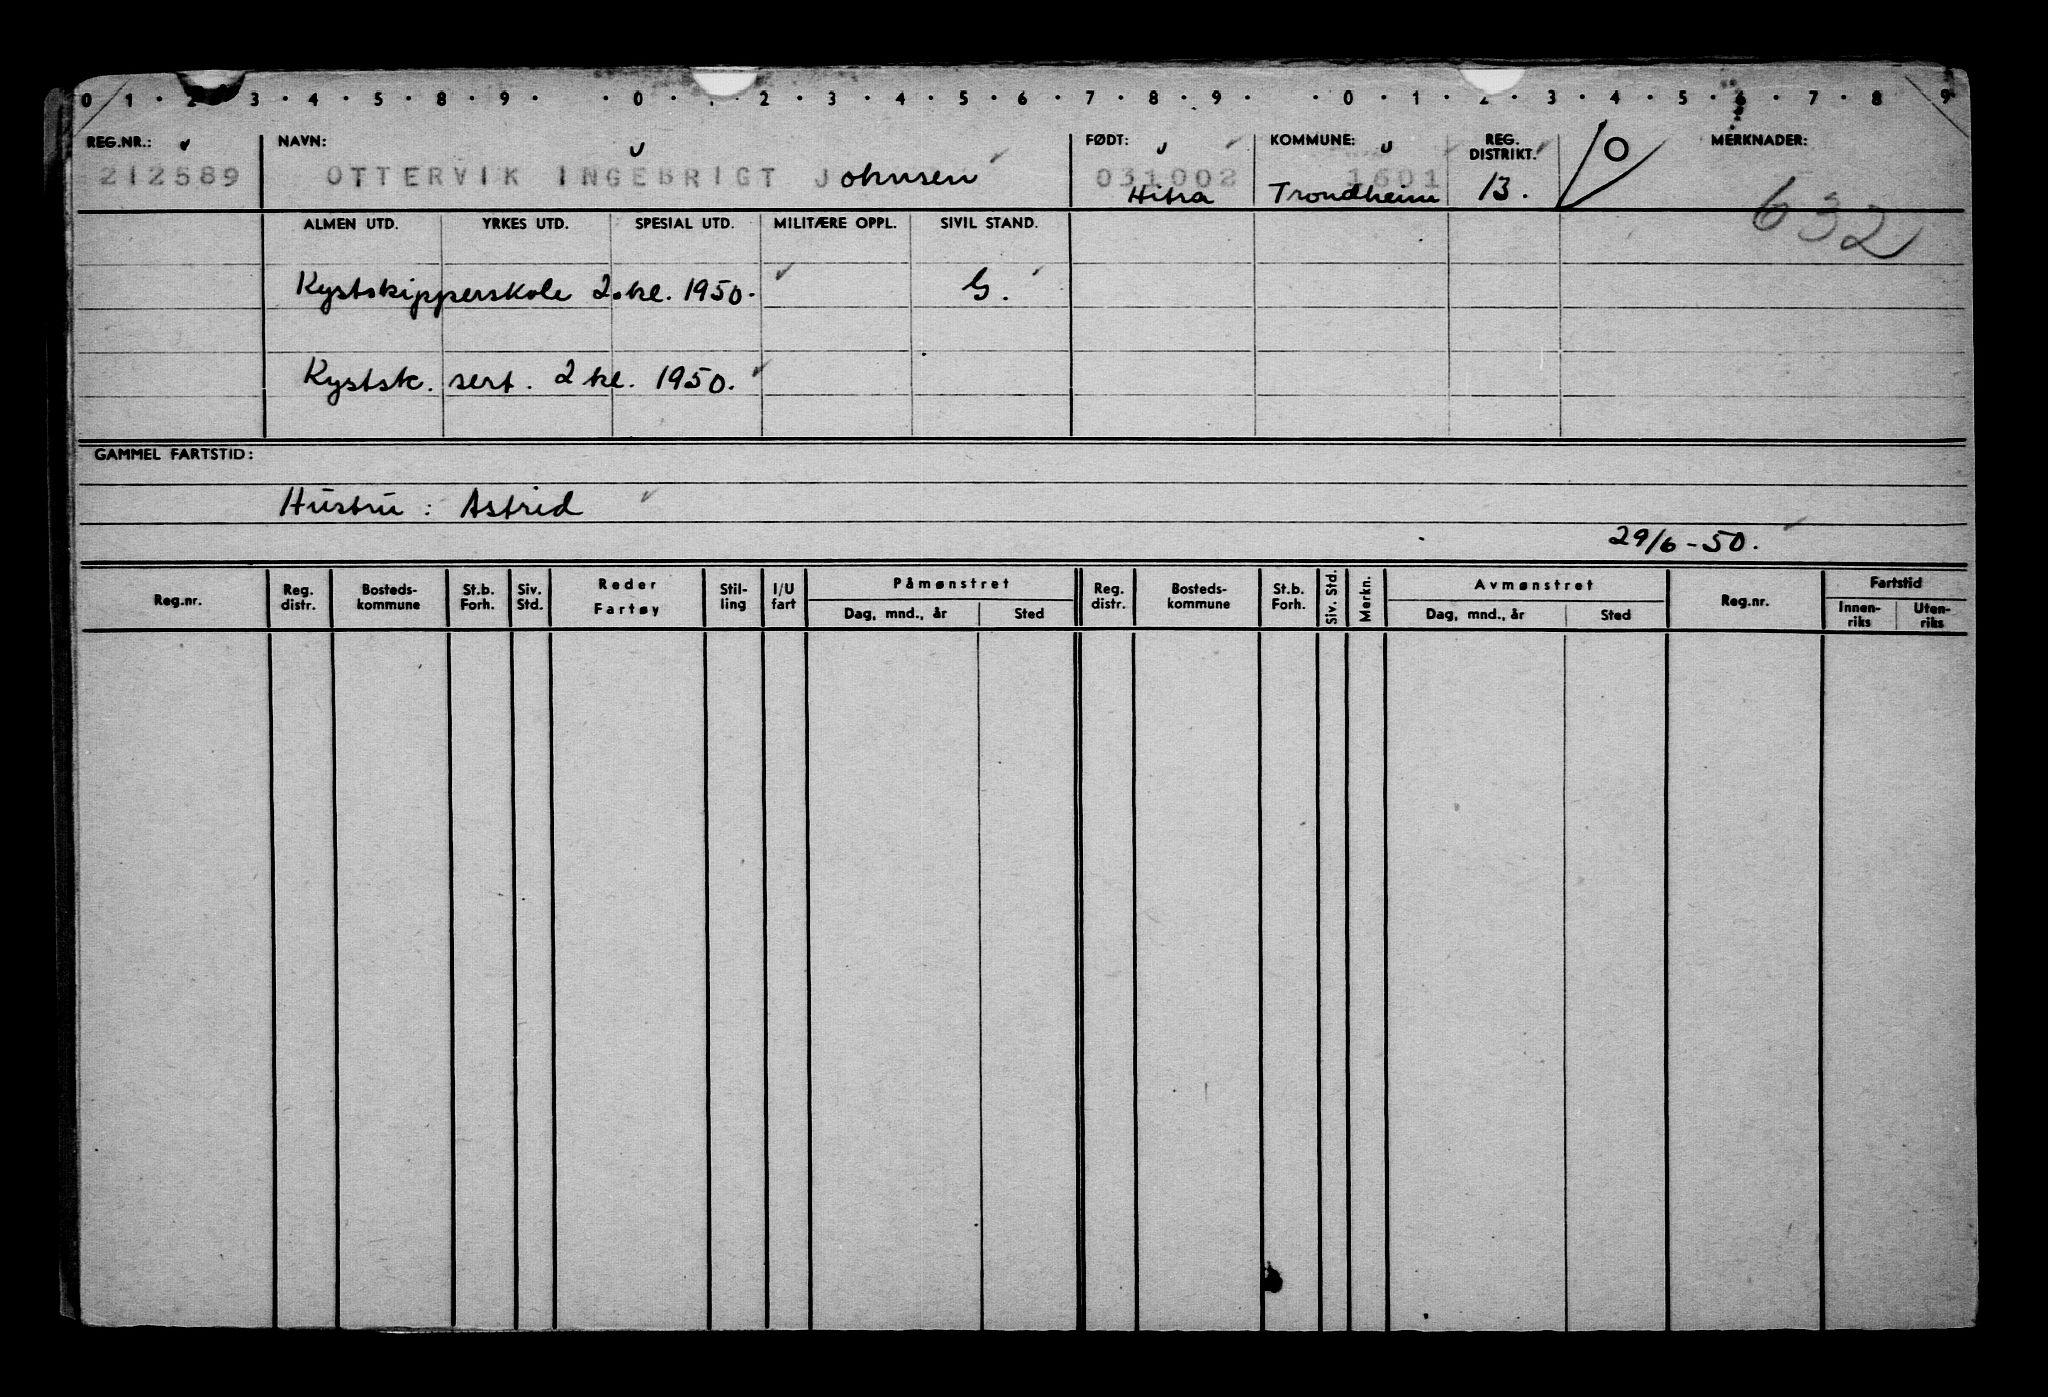 0 1 · 2 · 3 · 4 · 5 · 8 · 9 · · 0 · 1 · 2 · 3 · 4 · 5 · 6 · 7 · 8 · 9 · · 0 · 1 · 2 · 3 · 4 · 5 · 6 · 7 · 8 9
REG.NR.: NAVN: FØDT: KOMMUNE: REG. DISTRIKT. MERKNADER:
212589 OTTERVIK INGEBRIGT Johnsen 031002 1601 13. 10
Hitra Trondheim
632
ALMEN UTD. YRKES UTD. SPESIAL UTD. MILITÆRE OPPL. SIVIL STAND.
Kystskipperskole 2. kl. 1950. G.
Kystsk. sert. 2 kl. 1950.
GAMMEL FARTSTID:
Hustru : Astrid
29/6-50.
Reg.nr. Reg. distr. Bosteds-kommune St.b. Forh. Siv. Std. Reder Fartøy Stil-ling I/U fart Påmønstret Reg. distr. Bosteds-kommune St.b. Forh. Siv. Std. Merkn. Avmønstret Reg.nr. Fartstid
Dag, mnd., år Sted Dag, mnd., år Sted Innen-riks Uten-riks